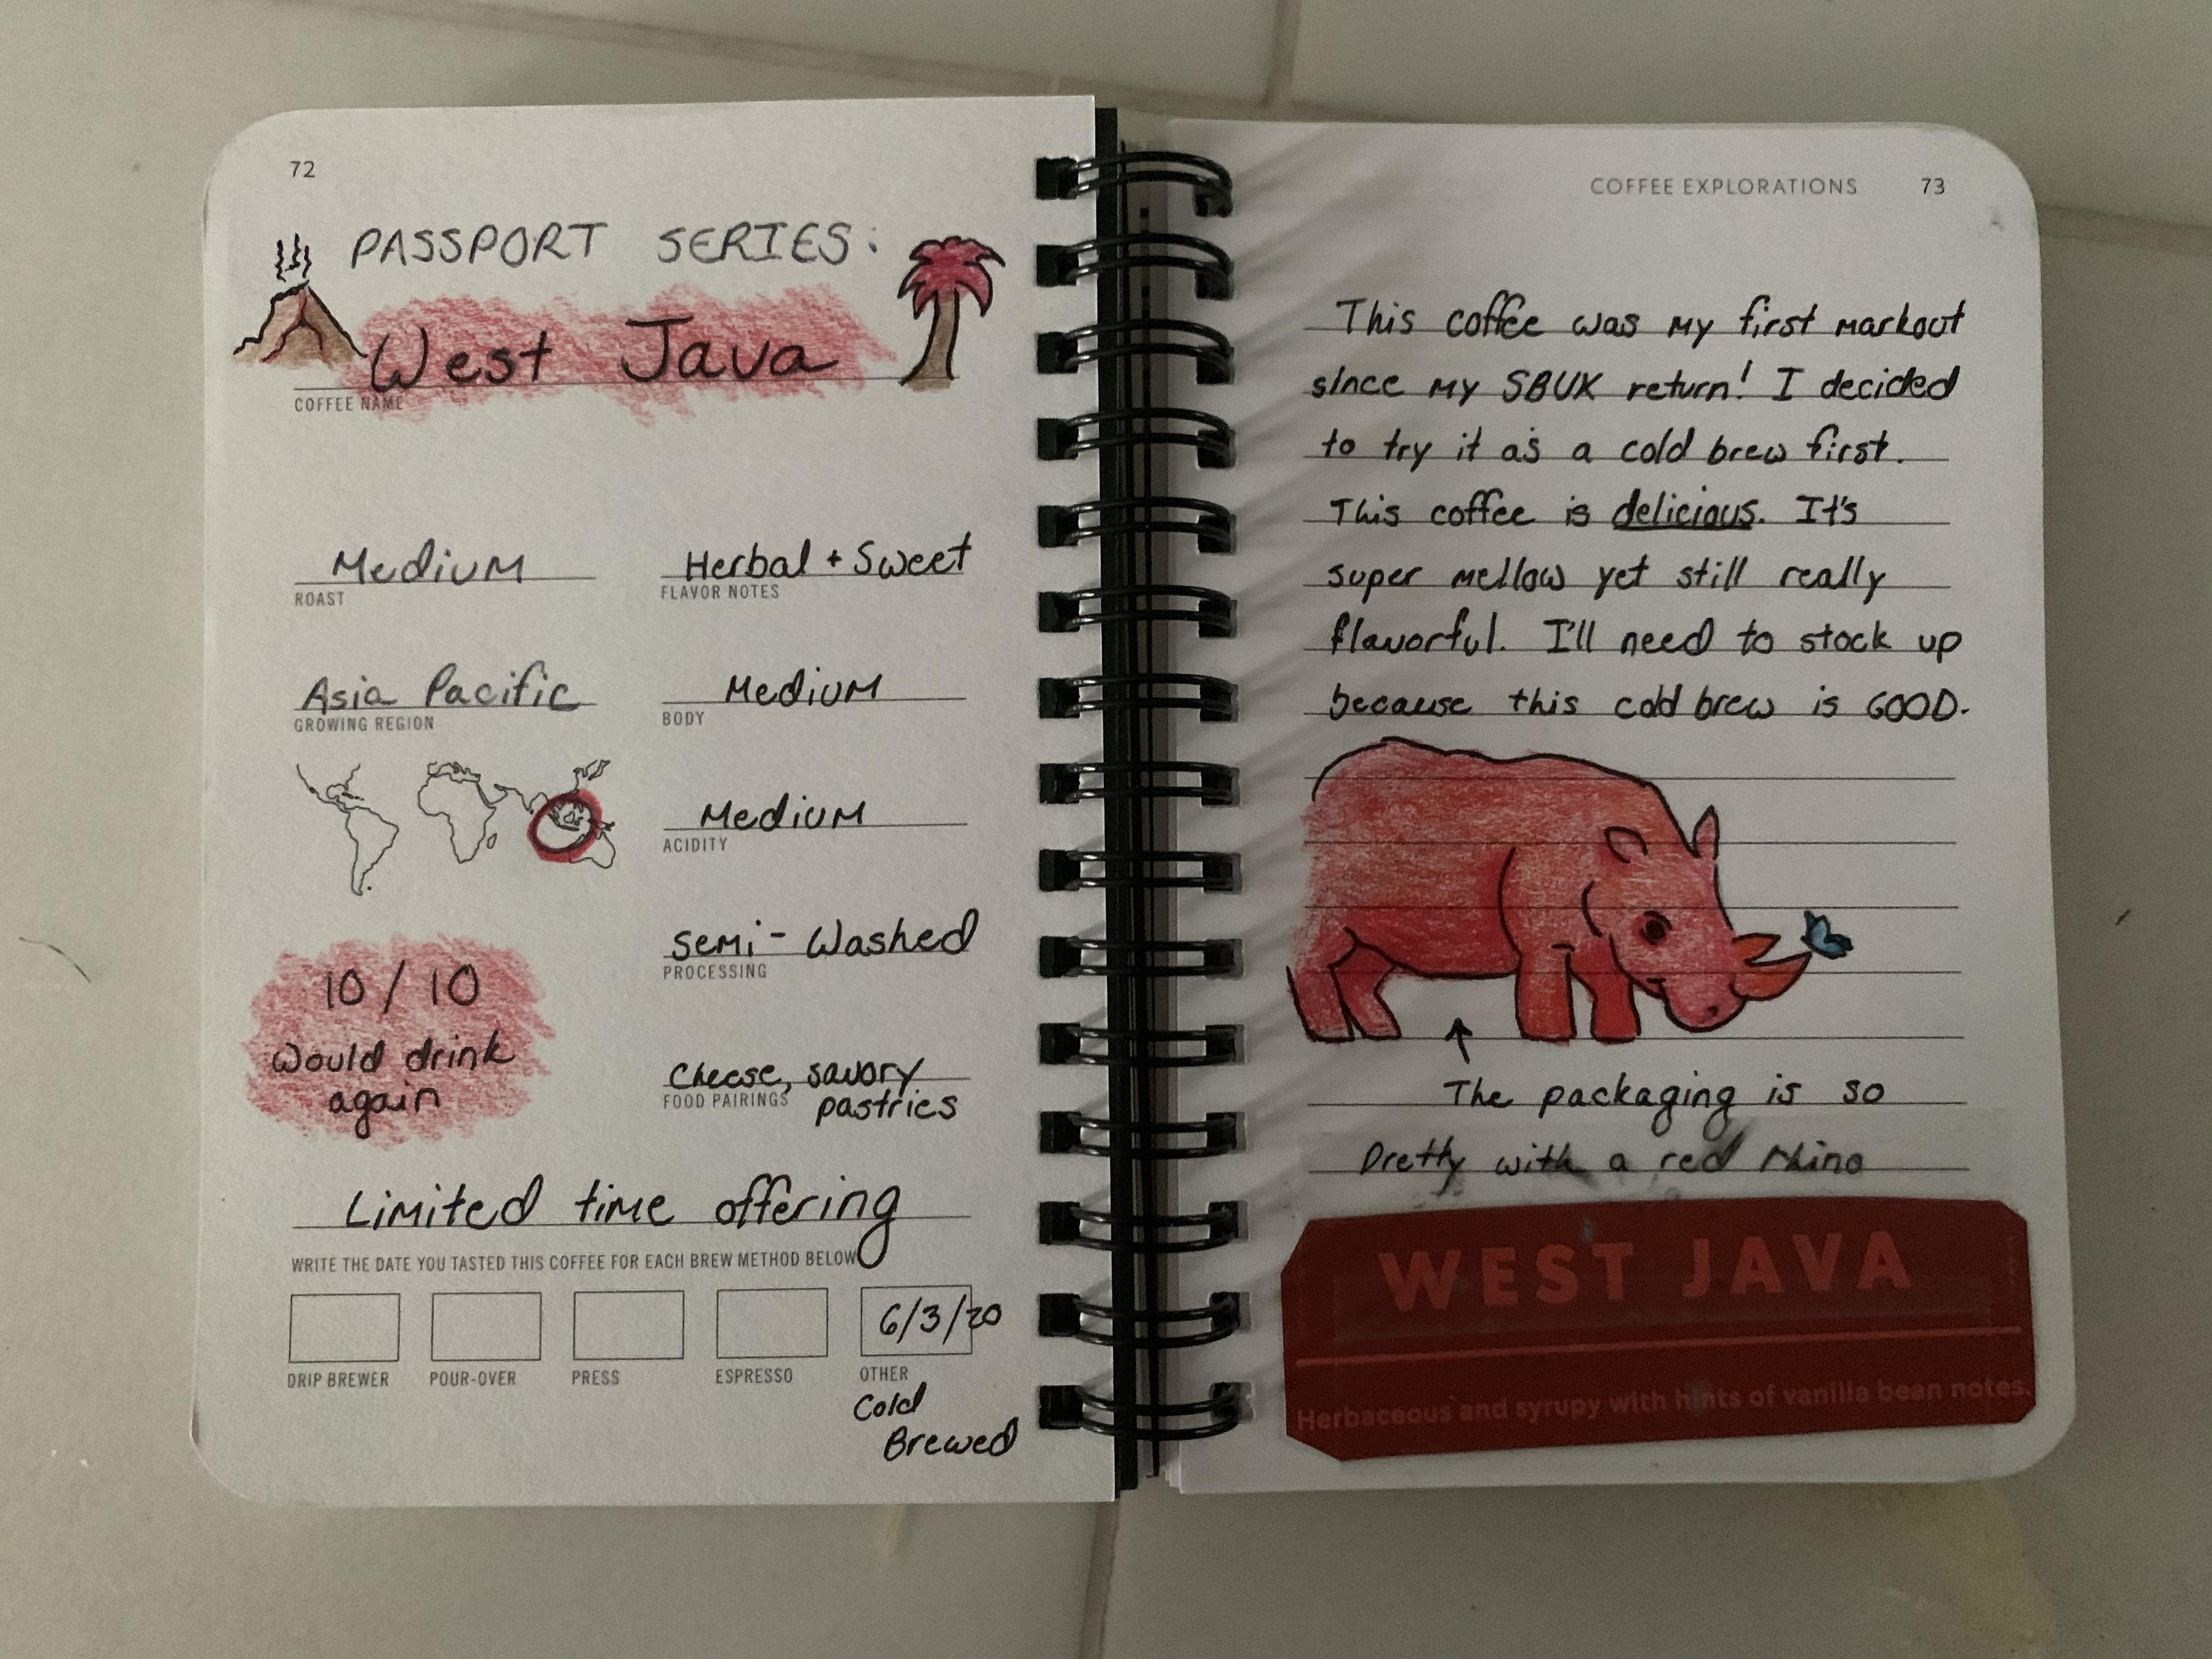 72
PASSPORT SERIES:
West Java
COFFEE NAME
Medium
ROAST
Herbal + Sweet
FLAVOR NOTES
Asia Pacific
GROWING REGION
Medium
BODY
Medium
ACIDITY
Semi-Washed
PROCESSING
10/10
Would drink
again
Cheese, savory
FOOD PAIRINGS
pastries
Limited time offering
WRITE THE DATE YOU TASTED THIS COFFEE FOR EACH BREW METHOD BELOW
6/3/20
DRIP BREWER
POUR-OVER
PRESS
ESPRESSO
OTHER
Cold
Brewed
COFFEE EXPLORATIONS 73
This coffee was my first markout
since my SBUX return! I decided
to try it as a cold brew first.
This coffee is delicious. It's
super mellow yet still really
flavorful. I'll need to stock up
because this cold brew is GOOD.
The packaging is so
pretty with a red rhino
WEST JAVA
Herbaceous and syrupy with hints of vanilla bean notes.